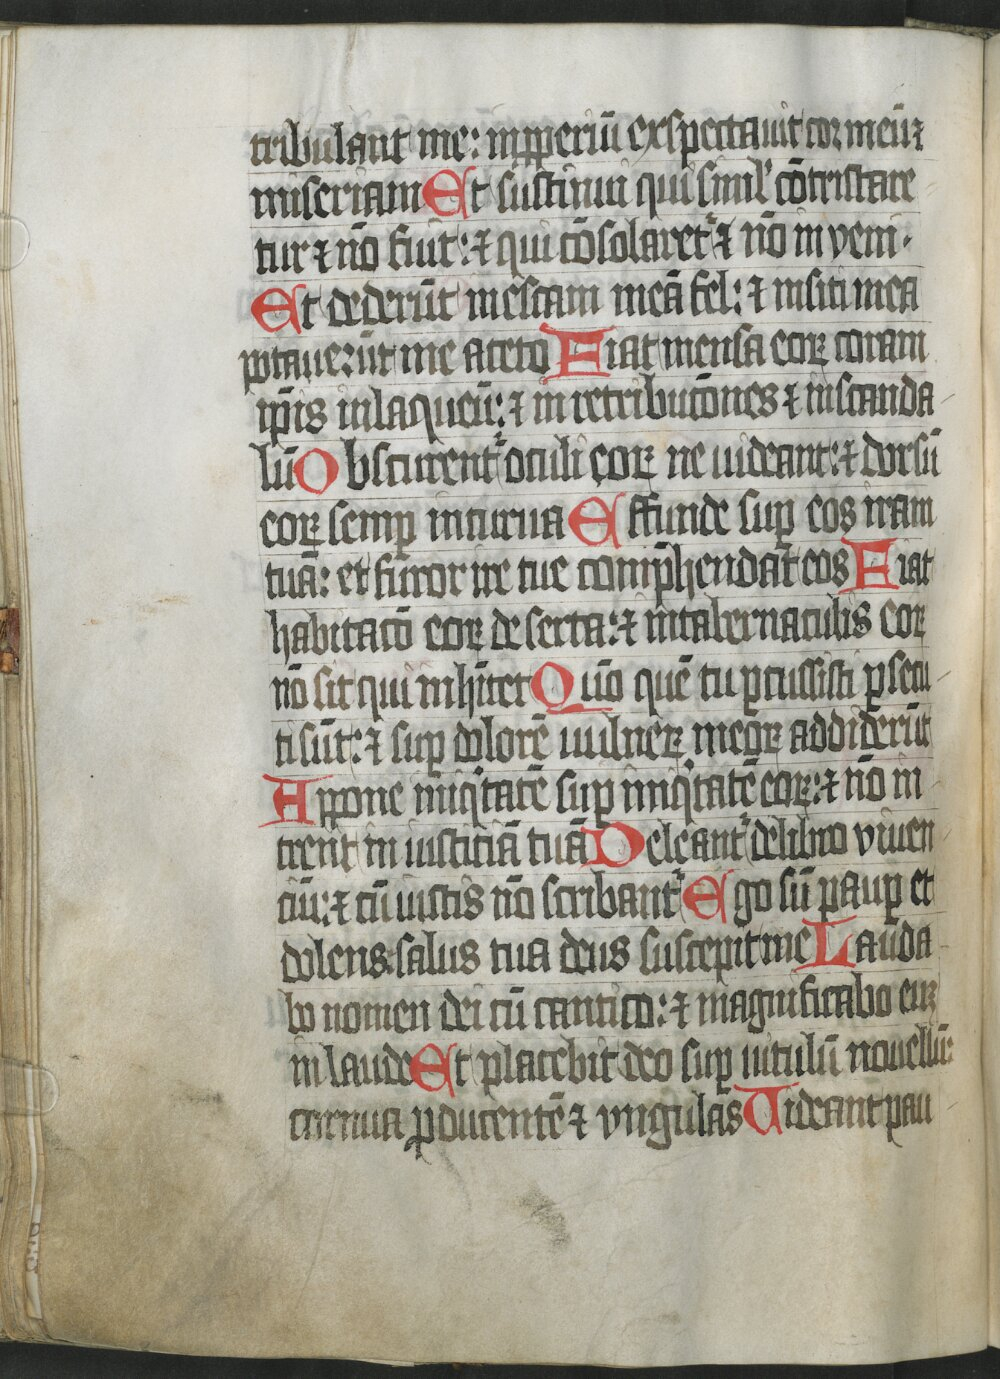 tribulant me: inpperiū exspectauit cor meū ⁊
miseriam Et sustinui qui simĺ cōtristare
tur ⁊ nō fuit: ⁊ qui cōsolaretᷣ ⁊ nō inveni.
Et dederūt inescam meā fel: ⁊ insiti mea
potauerūt me aceto Fiat mensa eoꝝ coram
ip̄is inlaqueū: ⁊ in retribucōnes ⁊ inscanda
lū Obscurentᷣ oculi eoꝝ ne uideant: ⁊ dorsū
eoꝝ semꝑ incurua Effunde suꝑ eos iram
tuā: et furor ire tue comp̄hendat eos Fiat
habitacō eoꝝ deserta: ⁊ intabernaculis eoꝝ
nō sit qui inhītet Quō quē tu ꝑcussisti ꝑsecu
ti sūt: ⁊ suꝑ dolorē uulneꝝ meoꝝ addiderūt
Appone iniqͥtatē suꝑ iniqͥtatē eoꝝ: ⁊ nō in
trent in iusticiā tuā Deleantᷣ delibro viuen
ciū: ⁊ cū iustis nō scribantᷣ Ego sū pauꝑ et
dolens: salus tua deus suscepit me Lauda
bo nomen dei cū cantico: ⁊ magnificabo eū
inlaude Et placebit deo suꝑ uitulū nouellū:
cornua ꝓducentē ⁊ vngulas Uideant pau